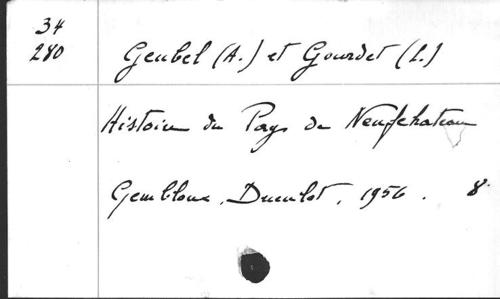 34
280
Geubel (A.) et Gourdet (L.)
Histoire du Pays de Neufchateau
Gembloux, Duculot, 1956. 8°